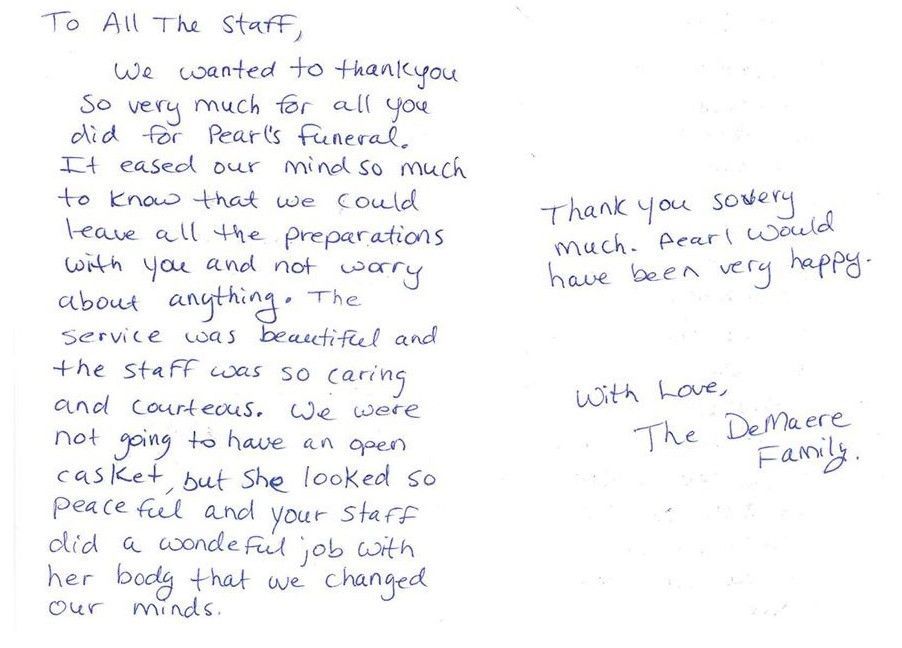 To All The Staff,
We wanted to thankyou
so very much for all you
did for Pearl's funeral.
It eased our mind so much
to know that we could
leave all the preparations
with you and not worry
about anything. The
service was beautiful and
the staff was so caring
and courteous. We were
not going to have an open
casket, but she looked so
peaceful and your staff
did a wondeful job with
her body that we changed
our minds.
Thank you so very
much. Pearl would
have been very happy.
With Love,
The DeMaere
Family.